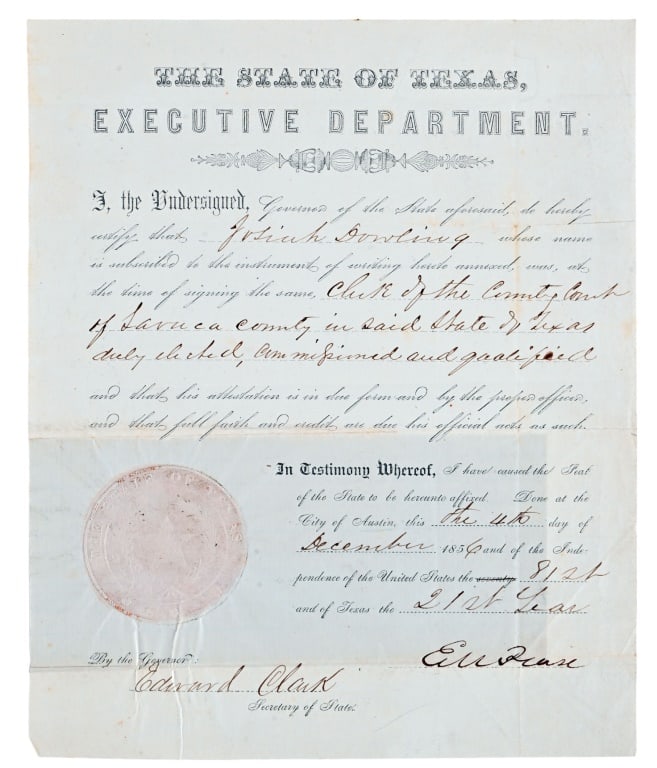 THE STATE OF TEXAS,
EXECUTIVE DEPARTMENT.
I, the Undersigned, Governor of the State aforesaid, do hereby
certify that Josiah Dowling whose name
is subscribed to the instrument of writing hereto annexed, was, at
the time of signing the same, Clerk of the County Court
of Lavaca county in said State of Texas
duly elected, commissioned and qualified
and that his attestation is in due form and by the proper officer,
and that full faith and credit are due his official acts as such.
In Testimony Whereof, I have caused the Seal
of the State to be hereunto affixed. Done at the
City of Austin, this the 4th day of
December 1856 and of the Inde-
pendence of the United States the seventy 81st
and of Texas the 21st Year
By the Governor:
E M Pease
Edward Clark
Secretary of State.